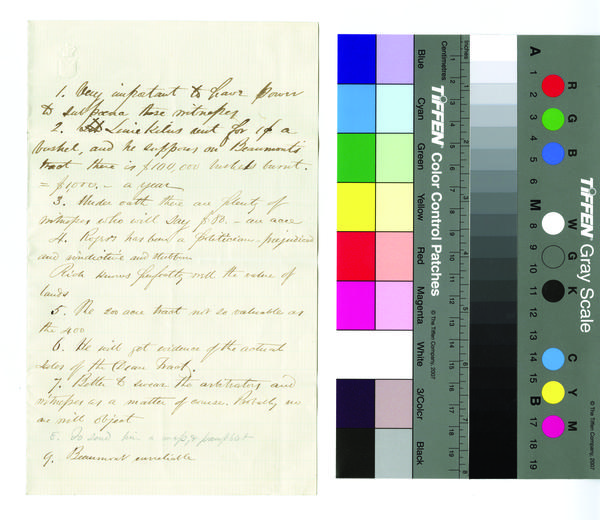 1. Very important to have power
to subpoena those witnesses
2. Lime kilns rent for 1¢ a
bushel, and he supposes on Beaumont's
tract there is $100,000 bushels burnt.
= $1000. - a year
3. Under oath there are plenty of
witnesses who will say $80. - an acre
4. Rogers has been a politician - prejudiced
and vindictive and stubborn
Rich knows perfectly well the value of
lands
5. The 200 acre tract not so valuable as
the 400
6. He will get evidence of the actual
sales of the Ocean Tract.
7. Better to swear the arbitrators and
witnesses as a matter of course. Probably no
one will object
8. To send him a map & pamphlet
9. Beaumont unreliable
Blue
Cyan
Green
Yellow
Red
Magenta
White
3/Color
Black
Centimetres
Inches
TIFFEN Color Control Patches
© The Tiffen Company, 2007
A 1 2 3 4 5 6 M 8 9 10 11 12 13 14 15 B 17 18 19
R
G
B
W
G
K
C
Y
M
TIFFEN Gray Scale
© The Tiffen Company, 2007